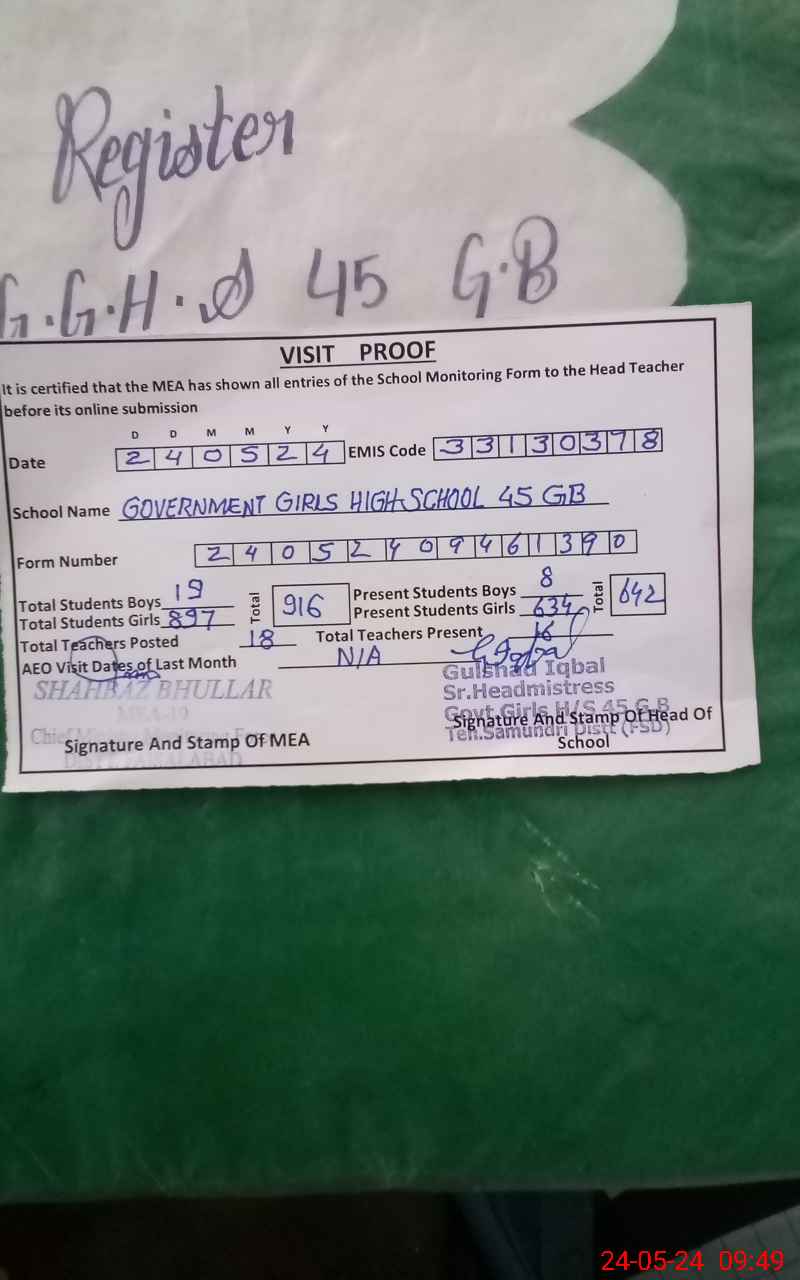 Register
G.G.H.S 45 G.B
VISIT PROOF
It is certified that the MEA has shown all entries of the School Monitoring Form to the Head Teacher
before its online submission
D D M M Y Y
Date 240524 EMIS Code 33130378
School Name GOVERNMENT GIRLS HIGH SCHOOL 45 GB
Form Number 24052409461390
Total Students Boys 19 Total 916 Present Students Boys 8 Total 642
Total Students Girls 897 Present Students Girls 634
Total Teachers Posted 18 Total Teachers Present 16
AEO Visit Dates of Last Month N/A
SHAHBAZ BHULLAR
Gulshad Iqbal
Sr.Headmistress
Govt.Girls H/S 45 G.B
Teh.Samundri Distt (FSD)
Signature And Stamp Of MEA
Signature And Stamp Of Head Of
School
24-05-24 09:49